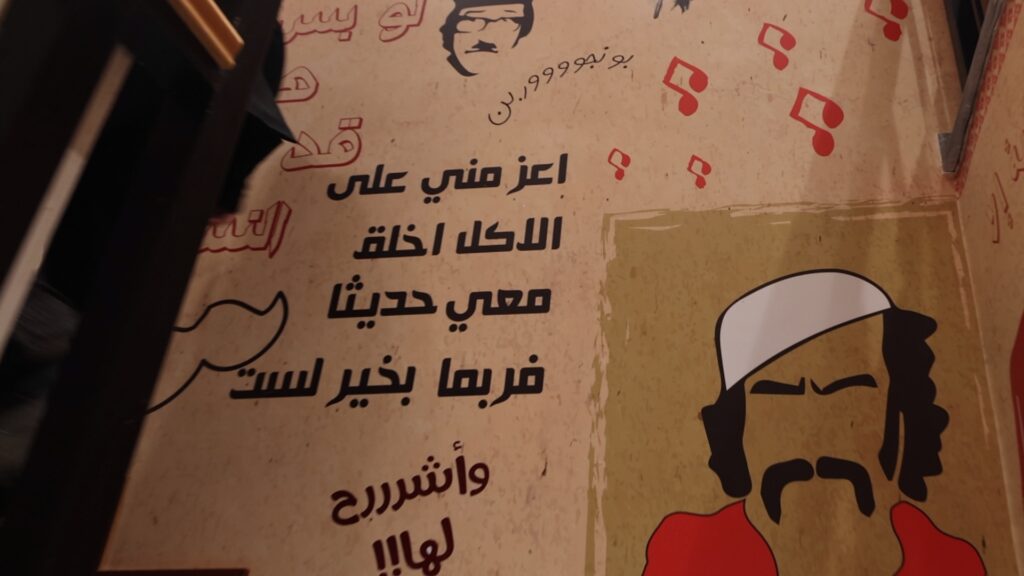 لو بس
بونجووووربن
قد
اعز مني على
الاكل اخلق
معي حديثا
فربما بخير لست
وأشرررح
لها!!!